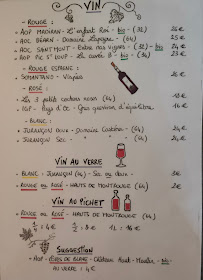 VIN
- ROUGE :
- AOP MADIRAN : L'enfant Roi - bio - (32) 26 €
- AOC BÉARN : Domaine Lapeyre (64) 25 €
- AOC SAINT MONT : Entre nos vignes - (32) - bio 24 €
- AOP PIC ST LOUP - La cuvée - bio - (34) 24 €
- ROUGE ESPAGNE :
- SOMONTANO - 26 €
- ROSÉ :
- Les 3 petits cochons noirs (64) 18 €
- IGP - Pays d'Oc - Gris 16 €
- BLANC :
- JURANÇON doux - Domaine (64) 24 €
- JURANÇON Sec - (64) 24 €
VIN AU VERRE
- BLANC - JURANÇON (64) - Sec ou doux - 3 €
- ROUGE OU ROSÉ - HAUTS DE MONTROUGE (64) 2 €
VIN AU PICHET
- ROUGE OU ROSÉ - HAUTS DE MONTROUGE (64)
: 4 € : 8 € 1L : 16 €
SUGGESTION
- AOP - CÔTES DE BLAYE - Château Haut - bio
AU VERRE : 4 €